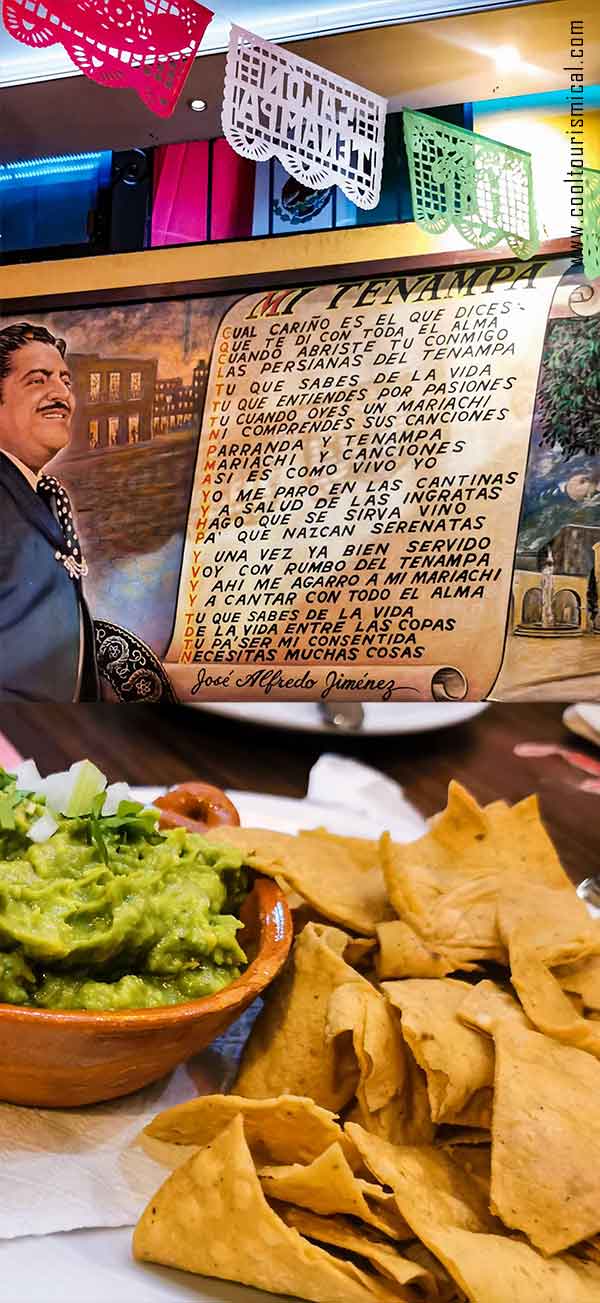 www.cooltourismical.com
SALON
TENAMPA
MI TENAMPA
CUAL CARIÑO ES EL QUE DICES
QUE TE DI CON TODA EL ALMA
CUANDO ABRISTE TU CONMIGO
LAS PERSIANAS DEL TENAMPA
TU QUE SABES DE LA VIDA
TU QUE ENTIENDES POR PASIONES
TU CUANDO OYES UN MARIACHI
NI COMPRENDES SUS CANCIONES
PARRANDA Y TENAMPA
MARIACHI Y CANCIONES
ASI ES COMO VIVO YO
YO ME PARO EN LAS CANTINAS
Y A SALUD DE LAS INGRATAS
HAGO QUE SE SIRVA VINO
PA' QUE NAZCAN SERENATAS
Y UNA VEZ YA BIEN SERVIDO
VOY CON RUMBO DEL TENAMPA
Y AHI ME AGARRO A MI MARIACHI
Y A CANTAR CON TODO EL ALMA
TU QUE SABES DE LA VIDA
DE LA VIDA ENTRE LAS COPAS
TU PA'SER MI CONSENTIDA
NECESITAS MUCHAS COSAS
José Alfredo Jiménez